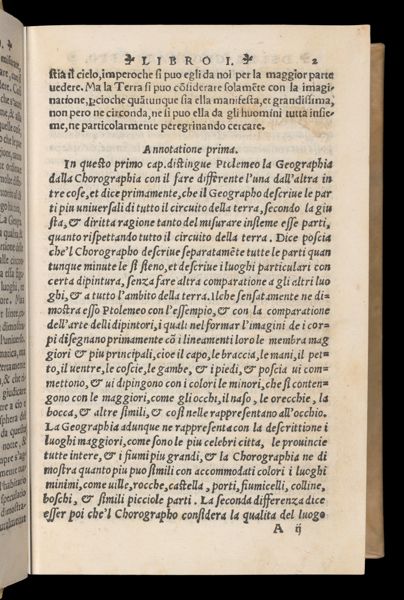 LIBRO I. 2
stia il cielo, imperoche si puo egli da noi per la maggior parte
uedere. Ma la Terra si puo cõsiderare solamẽte con la imagi
natione, Ꝑcioche quãtunque sia ella manifesta, et grandissima,
non pero ne circonda, ne si puo ella da gli huomini tutta insie-
me, ne particolarmente peregrinando cercare.
Annotatione prima.
In questo primo cap. distingue Ptolemeo la Geographia
dalla Chorographia con il fare differente l'una dall'altra in
tre cose, et dice primamente, che il Geographo descriue le par
ti piu uniuersali di tutto il circuito della terra, secondo la giu
sta, & diritta ragione tanto del misurare insieme esse parti,
quanto rispettando tutto il circuito della terra. Dice poscia
che'l Chorographo descriue separatamẽte tutte le parti quan
tunque minute le si sieno, et descriue i luoghi particulari con
certa dipintura, senza fare altra comparatione a gli altri luo
ghi, & a tutto l'ambito della terra. Ilche sensatamente ne di-
mostra esso Ptolemeo con l'essempio, & con la comparatione
dell'arte delli dipintori, i quali nel formar l'imagini de i cor-
pi disegnano primamente cõ i lineamenti loro le membra mag
giori & piu principali, cioe il capo, le braccia, le mani, il pet-
to, il uentre, le coscie, le gambe, & i piedi, & poscia ui com-
mettono, & ui dipingono con i colori le minori, che si conten-
gono con le maggiori, come gli occhi, il naso, le orecchie, la
bocca, & altre simili, & cosi nelle rappresentano all'occhio.
La Geographia adunque ne rappresenta con la descrittione i
luoghi maggiori, come sono le piu celebri citta, le prouincie
tutte intere, & i fiumi piu grandi, & la Chorographia ne di
mostra quanto piu puo simili con accommodati colori i luoghi
minimi, come uille, rocche, castella, porti, fiumicelli, colline,
boschi, & simili picciole parti. La seconda differenza dice
esser poi che'l Chorographo considera la qualita del luogo
A ij